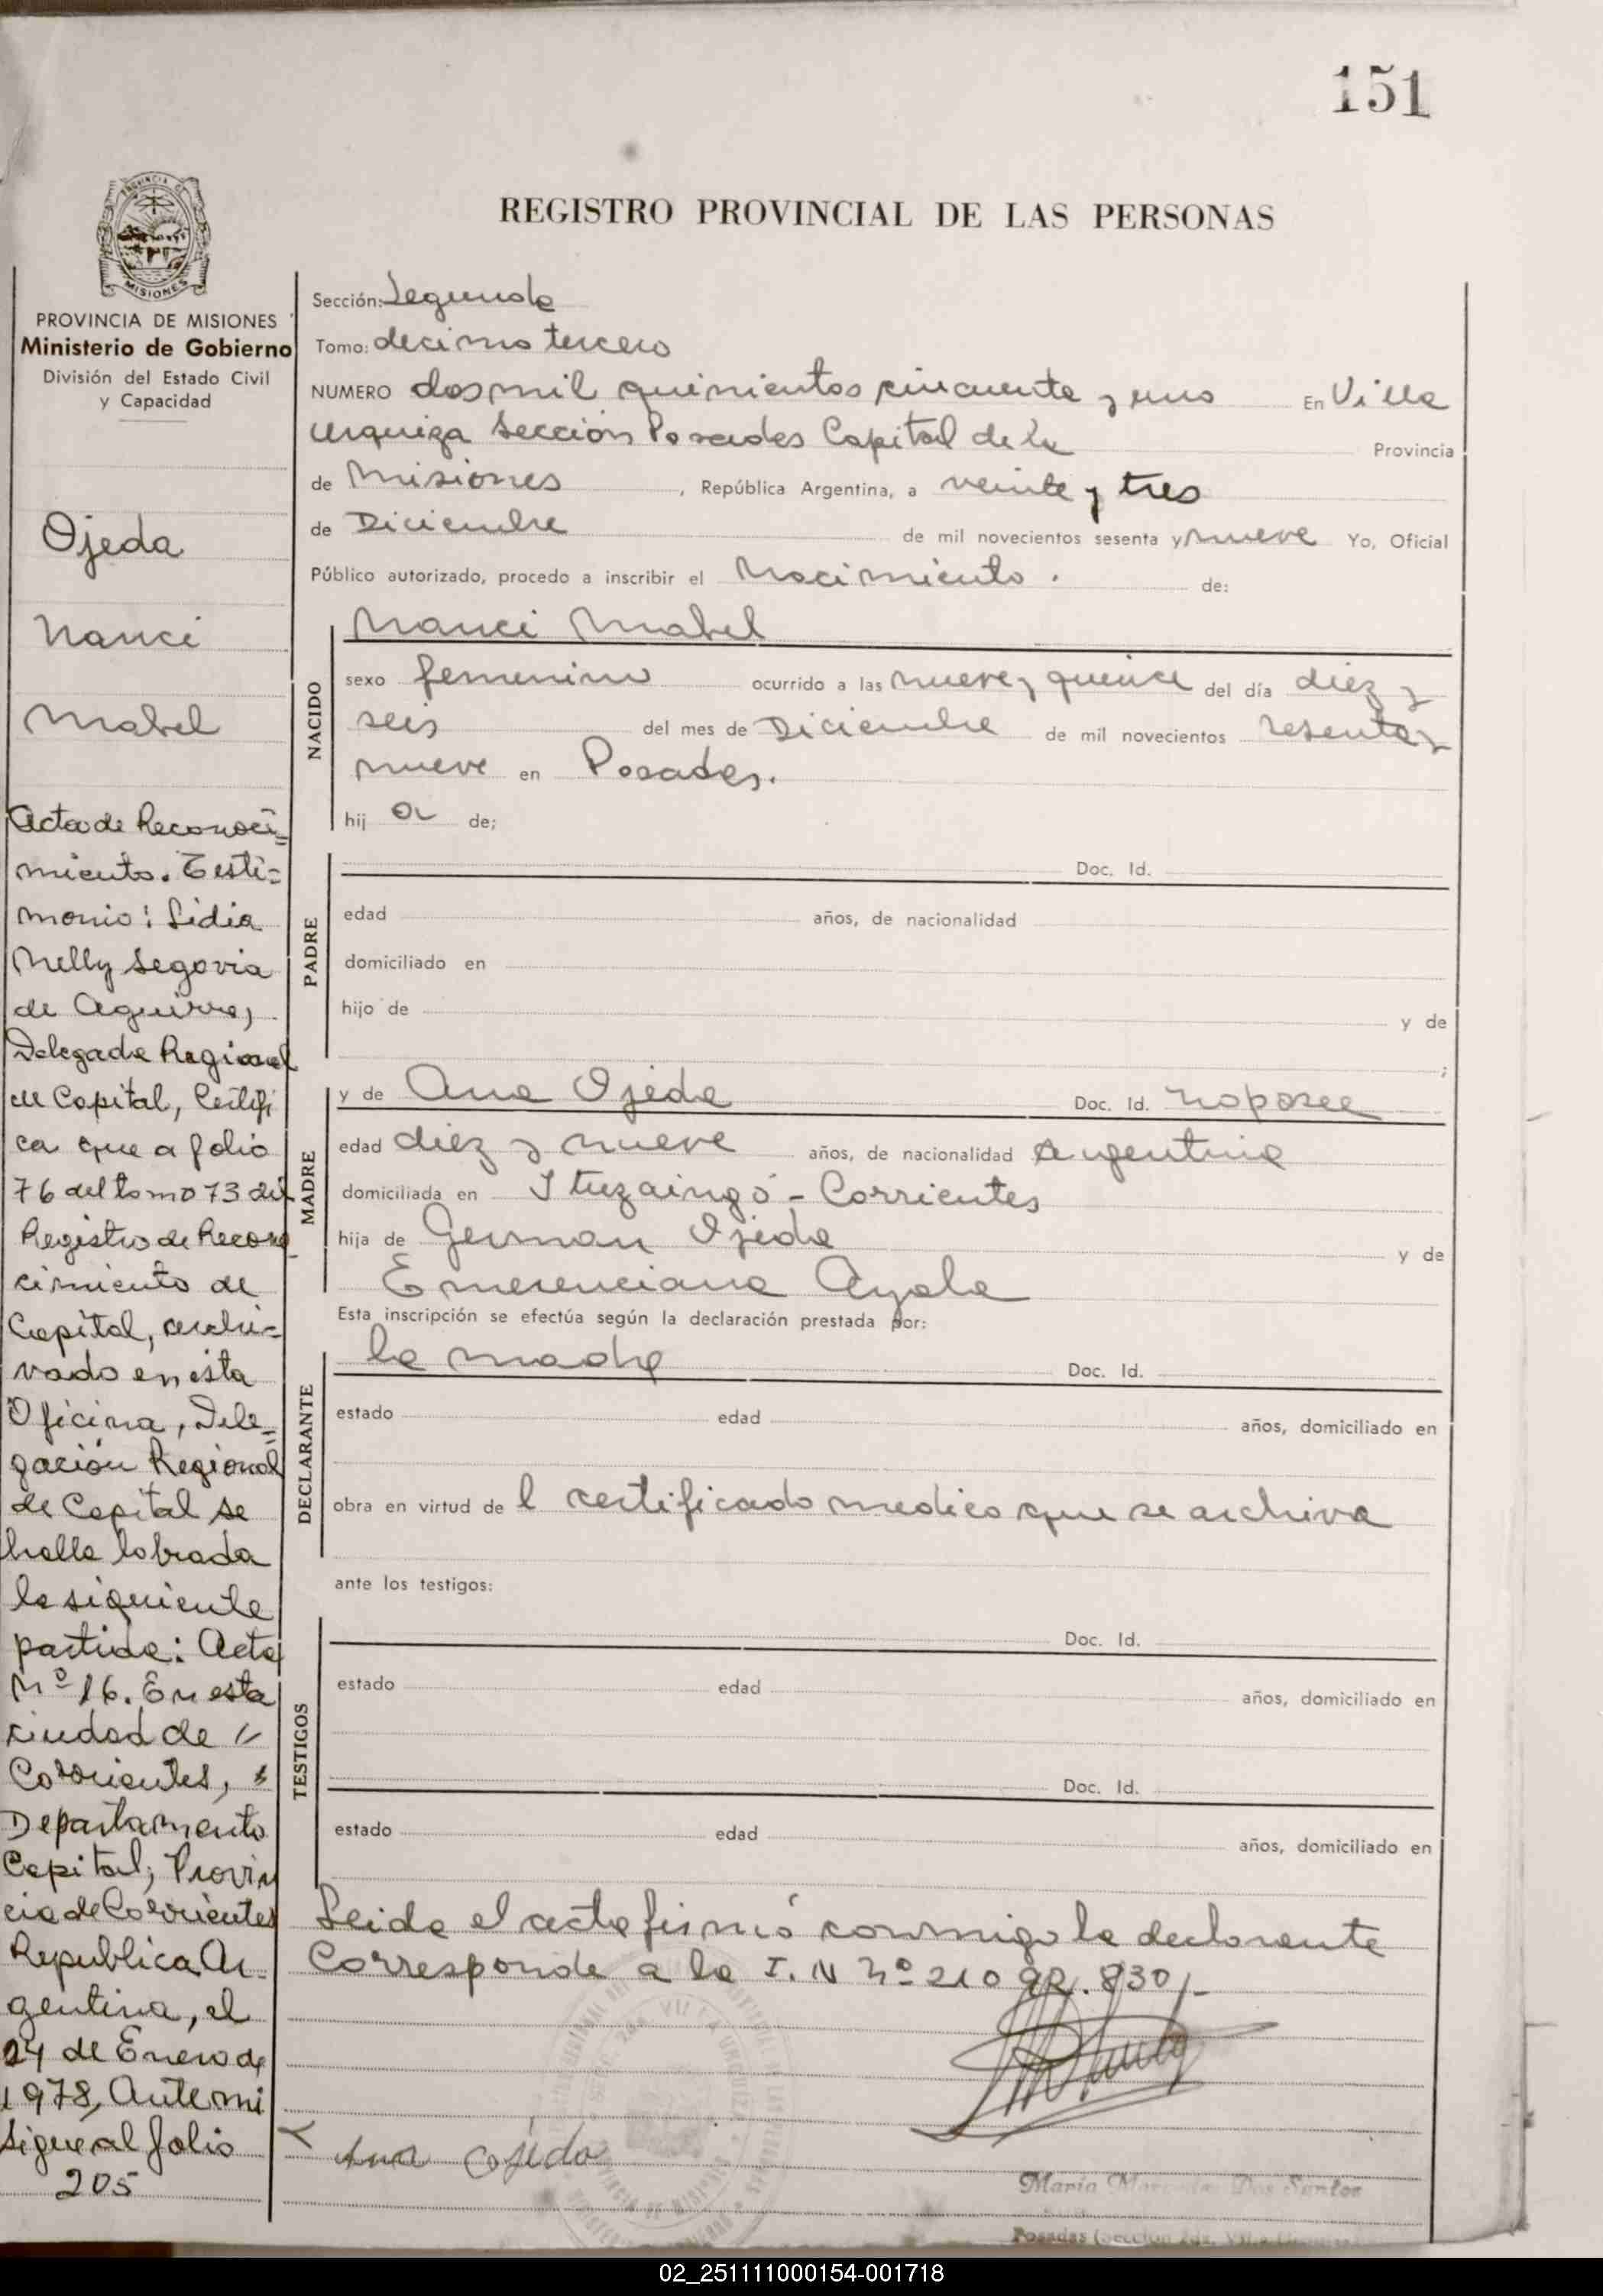 151
REGISTRO PROVINCIAL DE LAS PERSONAS
PROVINCIA DE MISIONES
Ministerio de Gobierno
División del Estado Civil
y Capacidad
Ojeda
Nanci
Mabel
Acta de Reconoci=
miento. Testi=
monio: Lidia
Nelly Segovia
de Aguirre,
Delegada Regional
de Capital, Certifi
ca que a folio
76 del tomo 73 del
Registro de Recono
cimiento de
Capital, archi=
vado en esta
Oficina, Dele=
gación Regional
de Capital se
halla labrada
la siguiente
partida: Acta
Nº 16. En esta
ciudad de "
Corrientes,
Departamento
Capital, Provin
cia de Corrientes
Republica Ar=
gentina, el
24 de Enero de
1978, Ante mi
Sigue al folio
205
Sección: Segunda
Tomo: decimo tercero
NUMERO dos mil quinientos cincuenta y uno En Villa
Urquiza Sección Posadas Capital de la Provincia
de Misiones, República Argentina, a veinte y tres
de Diciembre de mil novecientos sesenta y nueve Yo, Oficial
Público autorizado, procedo a inscribir el Nacimiento. de:
NACIDO
Nanci Mabel
sexo femenino ocurrido a las nueve y quince del día diez y
seis del mes de Diciembre de mil novecientos sesenta y
nueve en Posadas.
hij a de;
PADRE
Doc. Id.
edad años, de nacionalidad
domiciliado en
hijo de y de
;
MADRE
y de Ana Ojeda Doc. Id. no posee
edad diez y nueve años, de nacionalidad Argentina
domiciliada en Ituzaingó - Corrientes
hija de German Ojeda y de
Emerenciana Ayala
Esta inscripción se efectúa según la declaración prestada por:
DECLARANTE
la madre Doc. Id.
estado edad años, domiciliado en
obra en virtud de l certificado medico que se archiva
ante los testigos:
TESTIGOS
Doc. Id.
estado edad años, domiciliado en
Doc. Id.
estado edad años, domiciliado en
Leida el acta firmó conmigo la declarante
Corresponde a la I. N Nº 210 92. 830/-
Ana Ojeda
María Dos Santos
Posadas
02_251111000154-001718